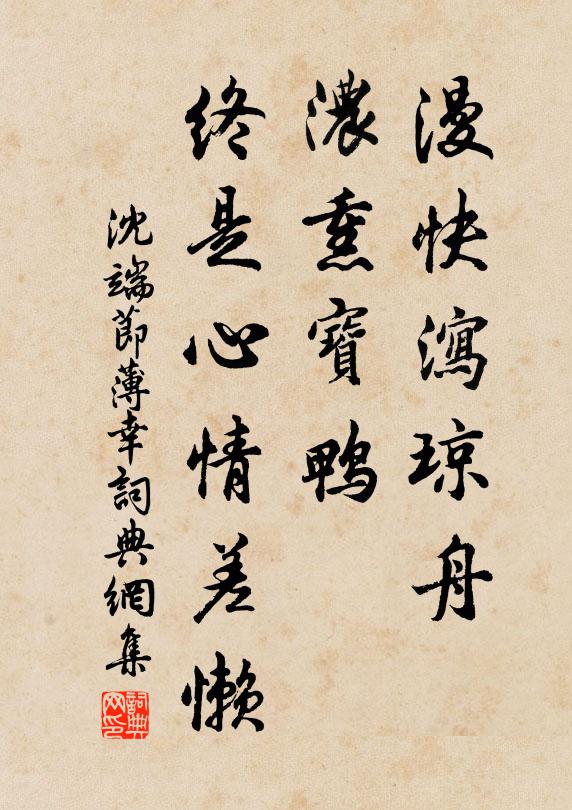 漫快瀉琼舟
濃熏寶鴨
終是心情差懒
沈端節薄幸詞典網集
詞典网印